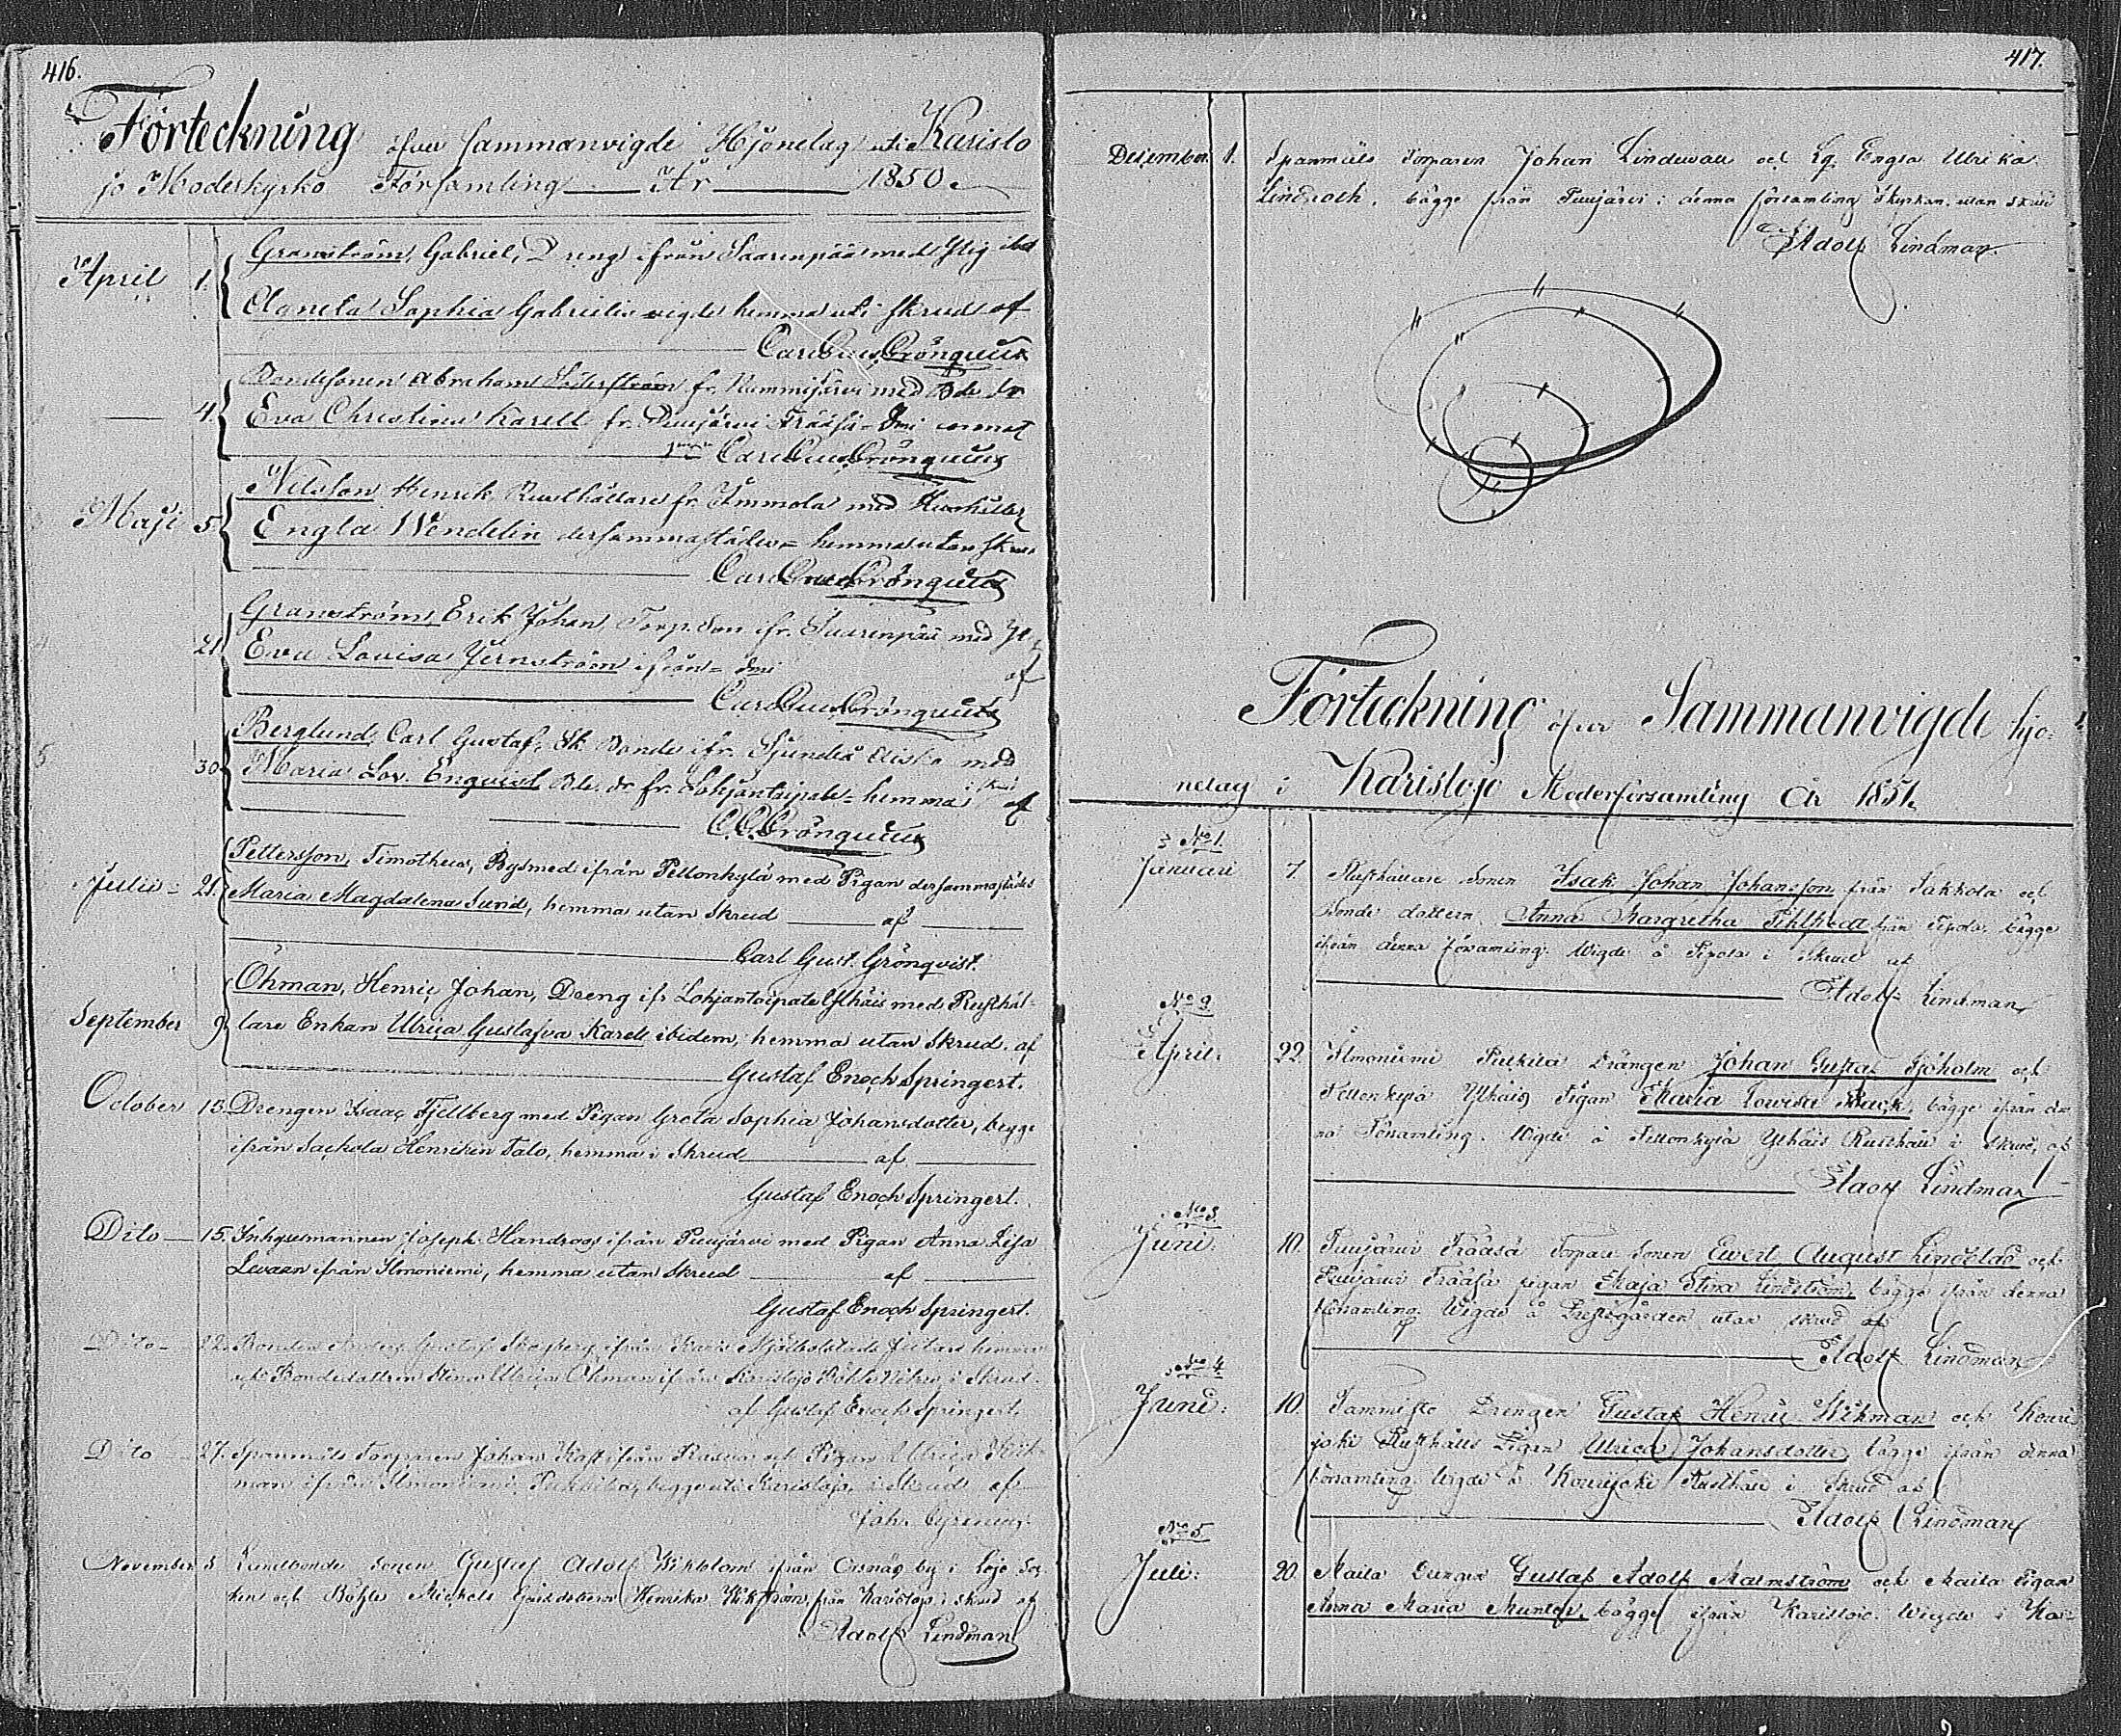 416.
Förteckning öfver Sammanvigde Hjonelag uti Karislo
jo Moderkyrko Församling År 1850.
April 1. Granström, Gabriel, Dreng ifrån Saarenpää med
Agneta Sophia Gabrielin vigde hemma uti skrud af
Carl Gust. Grönqvist
4. Bondesonen Abraham Söderström fr. Nummijärvi med Bde dr
Eva Christina Karell fr. Puujärvi Frååsa
Carl Gust. Grönqvist
Maji 5. Nilsson Henrik Rusthållare fr. Ammola med
Engla Wendelin dersammastädes = hemma utan skrud
Carl Gust Grönqvist
21 Granström, Erik Johan, Torp. Son ifr. Saarenpää med
Eva Lovisa Jernström ifrån af
Carl Gust. Grönqvist
30 Berglund Carl Gustaf, Bonde ifr. Sjundeå med
Maria Lov. Enqvist Bde. dr fr. Lohjantaipale = hemma i skrud af
C. G. Grönqvist
Julii 21. Pettersson, Timotheus, Bysmed ifrån Pellonkylä med Pigan dersammastädes
Maria Magdalena Sund, hemma utan Skrud af
Carl Gust. Grönqvist.
September 9. Öhman, Henric Johan, Dreng ifr Lohjantaipale Ylhäis med Rusthål-
lare Enkan Ulrica Gustafva Karell ibidem, hemma utan Skrud. af
Gustaf Enoch Springert.
October 13. Drengen Isaac Fjellberg med Pigan Greta Sophia Johansdotter, begge
ifrån Sackola Henrikin Talo, hemma i Skrud af
Gustaf Enoch Springert.
Dito 15. Inhysesmannen Joseph Handroos ifrån Puujärvi med Pigan Anna Lisa
Levaan ifrån Ilmoniemi, hemma utan Skrud af
Gustaf Enoch Springert.
Dito 22. Bonden Anders Gustaf Skogberg ifrån Karis hemman
och Bondedottren Ulrica Öhman ifrån Karislojo i Skrud.
af Gustaf Enoch Springert.
Dito 27. Spannmåls Torparen Johan ifrån och Pigan Ulrica Wik-
man ifrån Ilmoniemi Pukkila, begge uti Karislojo, i Skrud af
Joh.
November 3 Landbonde Sonen Gustaf Adolf Wikblom ifrån Orsnäs by i Lojo Soc-
ken och Böhle Mickels Gårdsdottern Henrika Wikström från Karislojo i skrud af
Adolf Lindman
417.
December 1. Spanmåls Torparen Johan Lindewall och Engla Ulrika
Lindroth, bägge från Puujärvi i denna församling i kyrkan utan skrud
af Adolf Lindman.
Förteckning öfver Sammanvigde hjo-
nelag i Karislojo Moderförsamling År 1851.
No 1. Januari 7. Rusthållare Sonen Isak Johan Johansson från Sakkola och
Bonde dottern Anna Margretha Pihlstedt från Pipola, bägge
ifrån denna församling. Wigde å Pipola i Skrud af
Adolf Lindman
No 2. April: 22. Ilmoniemi Pukkila Drängen Johan Gustaf Sjöholm och
Pellonkylä Ylhäis Pigan Maria Lowisa Back, bägge ifrån den-
na Församling. Wigde å Pellonkylä Ylhäis Rusthåll i Skrud, af
Adolf Lindman
No 3. Juni: 10. Puujärvi Frååsa Torpare Sonen Ewert August Lindblad och
Puujärvi Frååsa pigan Maja Stina Lindström, bägge ifrån denna
församling. Wigde å Prestegården utan skrud af
Adolf Lindman
No 4. Juni: 10. Tammisto Drengen Gustaf Henric Wikman och Kouri
joki Rusthålls Pigan Ulrica Johansdotter, bägge ifrån denna
församling. Wigde å Kourijoki Rusthåll i Skrud af
Adolf Lindman
No 5. Juli: 20. Maila Drengen Gustaf Adolf Malmström och Maila Pigan
Anna Maria Munter, bägge ifrån Karislojo. Wigde i Ka-